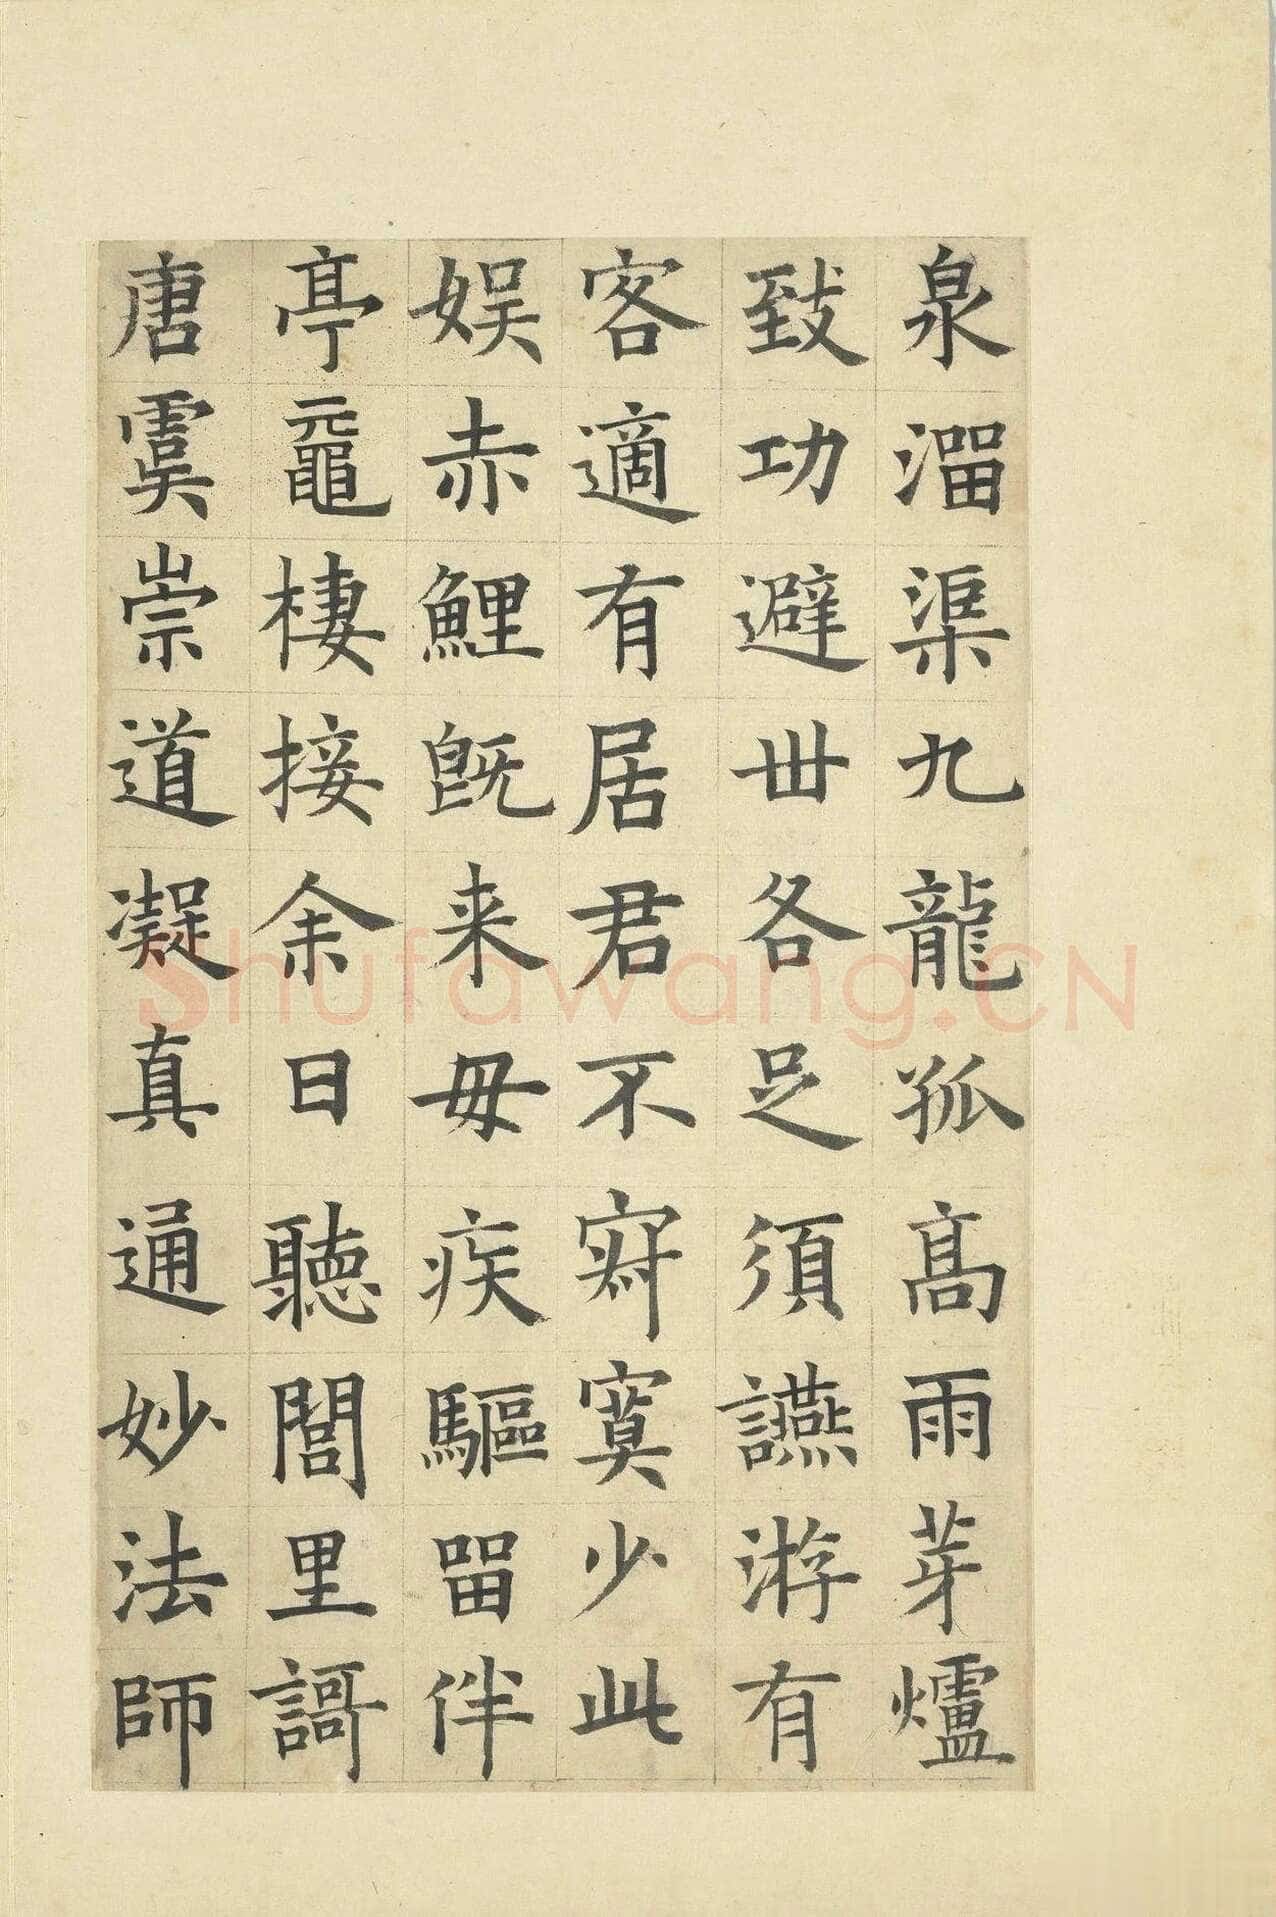 泉溜渠九龍孤高雨芽爐
致功避世各足須讌游有
客適有居君不寂寞少此
娛赤鯉既来毋疾驅留伴
亭黿棲接余日聽閭里謌
唐虞崇道凝真通妙法師
Shufawang.CN